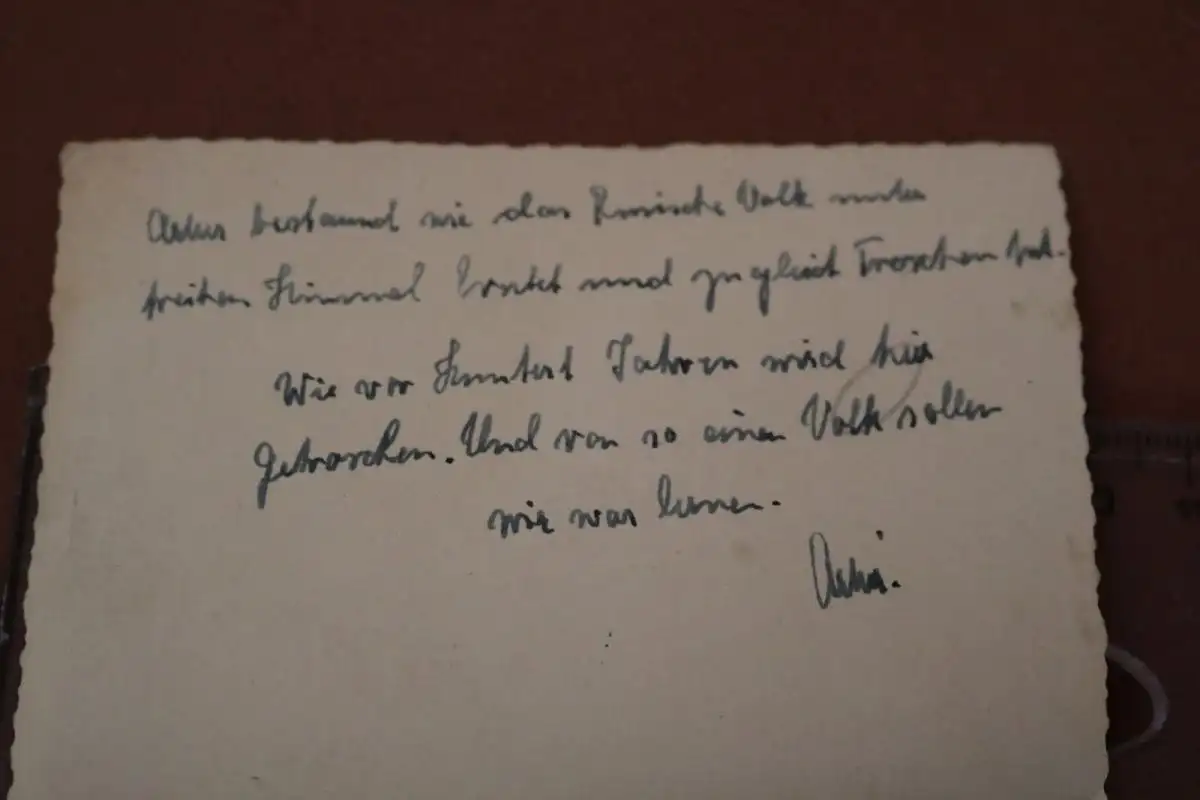 bestaund wie das Rusische Volk unter
freihen Himmel Erntet und zugleich Troschen tut.
Wie vor Huntert Jahren wird hier
getroschen. Und von so einen Volk sollen
wir was lernen.